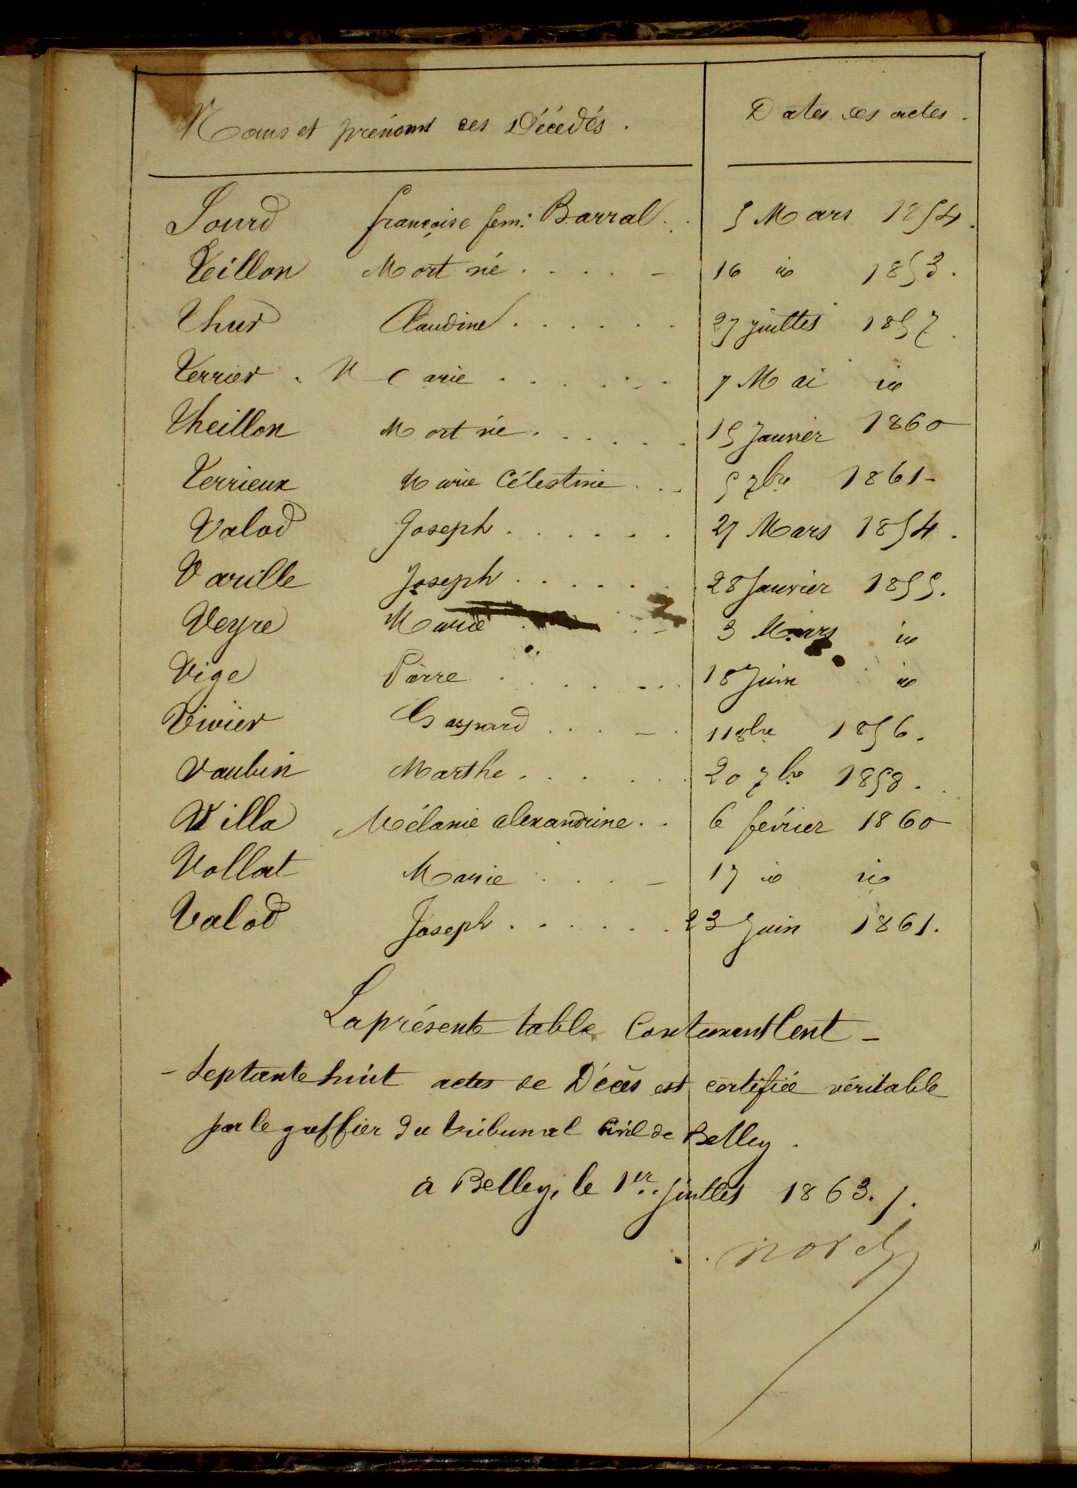 Noms et prénoms des Décédés. Dates des actes.
Sourd françoise fem: Barral.. 5 Mars 1854.
Teillon Mort né.....- 16 id 1853.
Thur Claudine...... 27 juillet 1857.
Terrier. Marie...... 7 Mai id
Theillon Mort né...... 15 Janvier 1860
Terrieux Marie Célestine... 5 7bre 1861-
Valod Joseph...... 27 Mars 1854.
Varille Joseph...... 28 Janvier 1855.
Veyre Marie 3 Mars id
Vige Pierre...... 18 Juin id
Vivier Gaspard...-. 11 8bre 1856.
Vaubin Marthe...... 20 7bre 1858..
Villa Mélanie alexandrine.. 6 février 1860
Vollat Marie...- 17 id id
Valod Joseph...... 23 Juin 1861.
La présente table Contenant Cent-
-Septante huit actes de Décès est certifiée véritable
par le greffier du tribunal Civil de Belley.
à Belley, le 1er juillet 1863./.